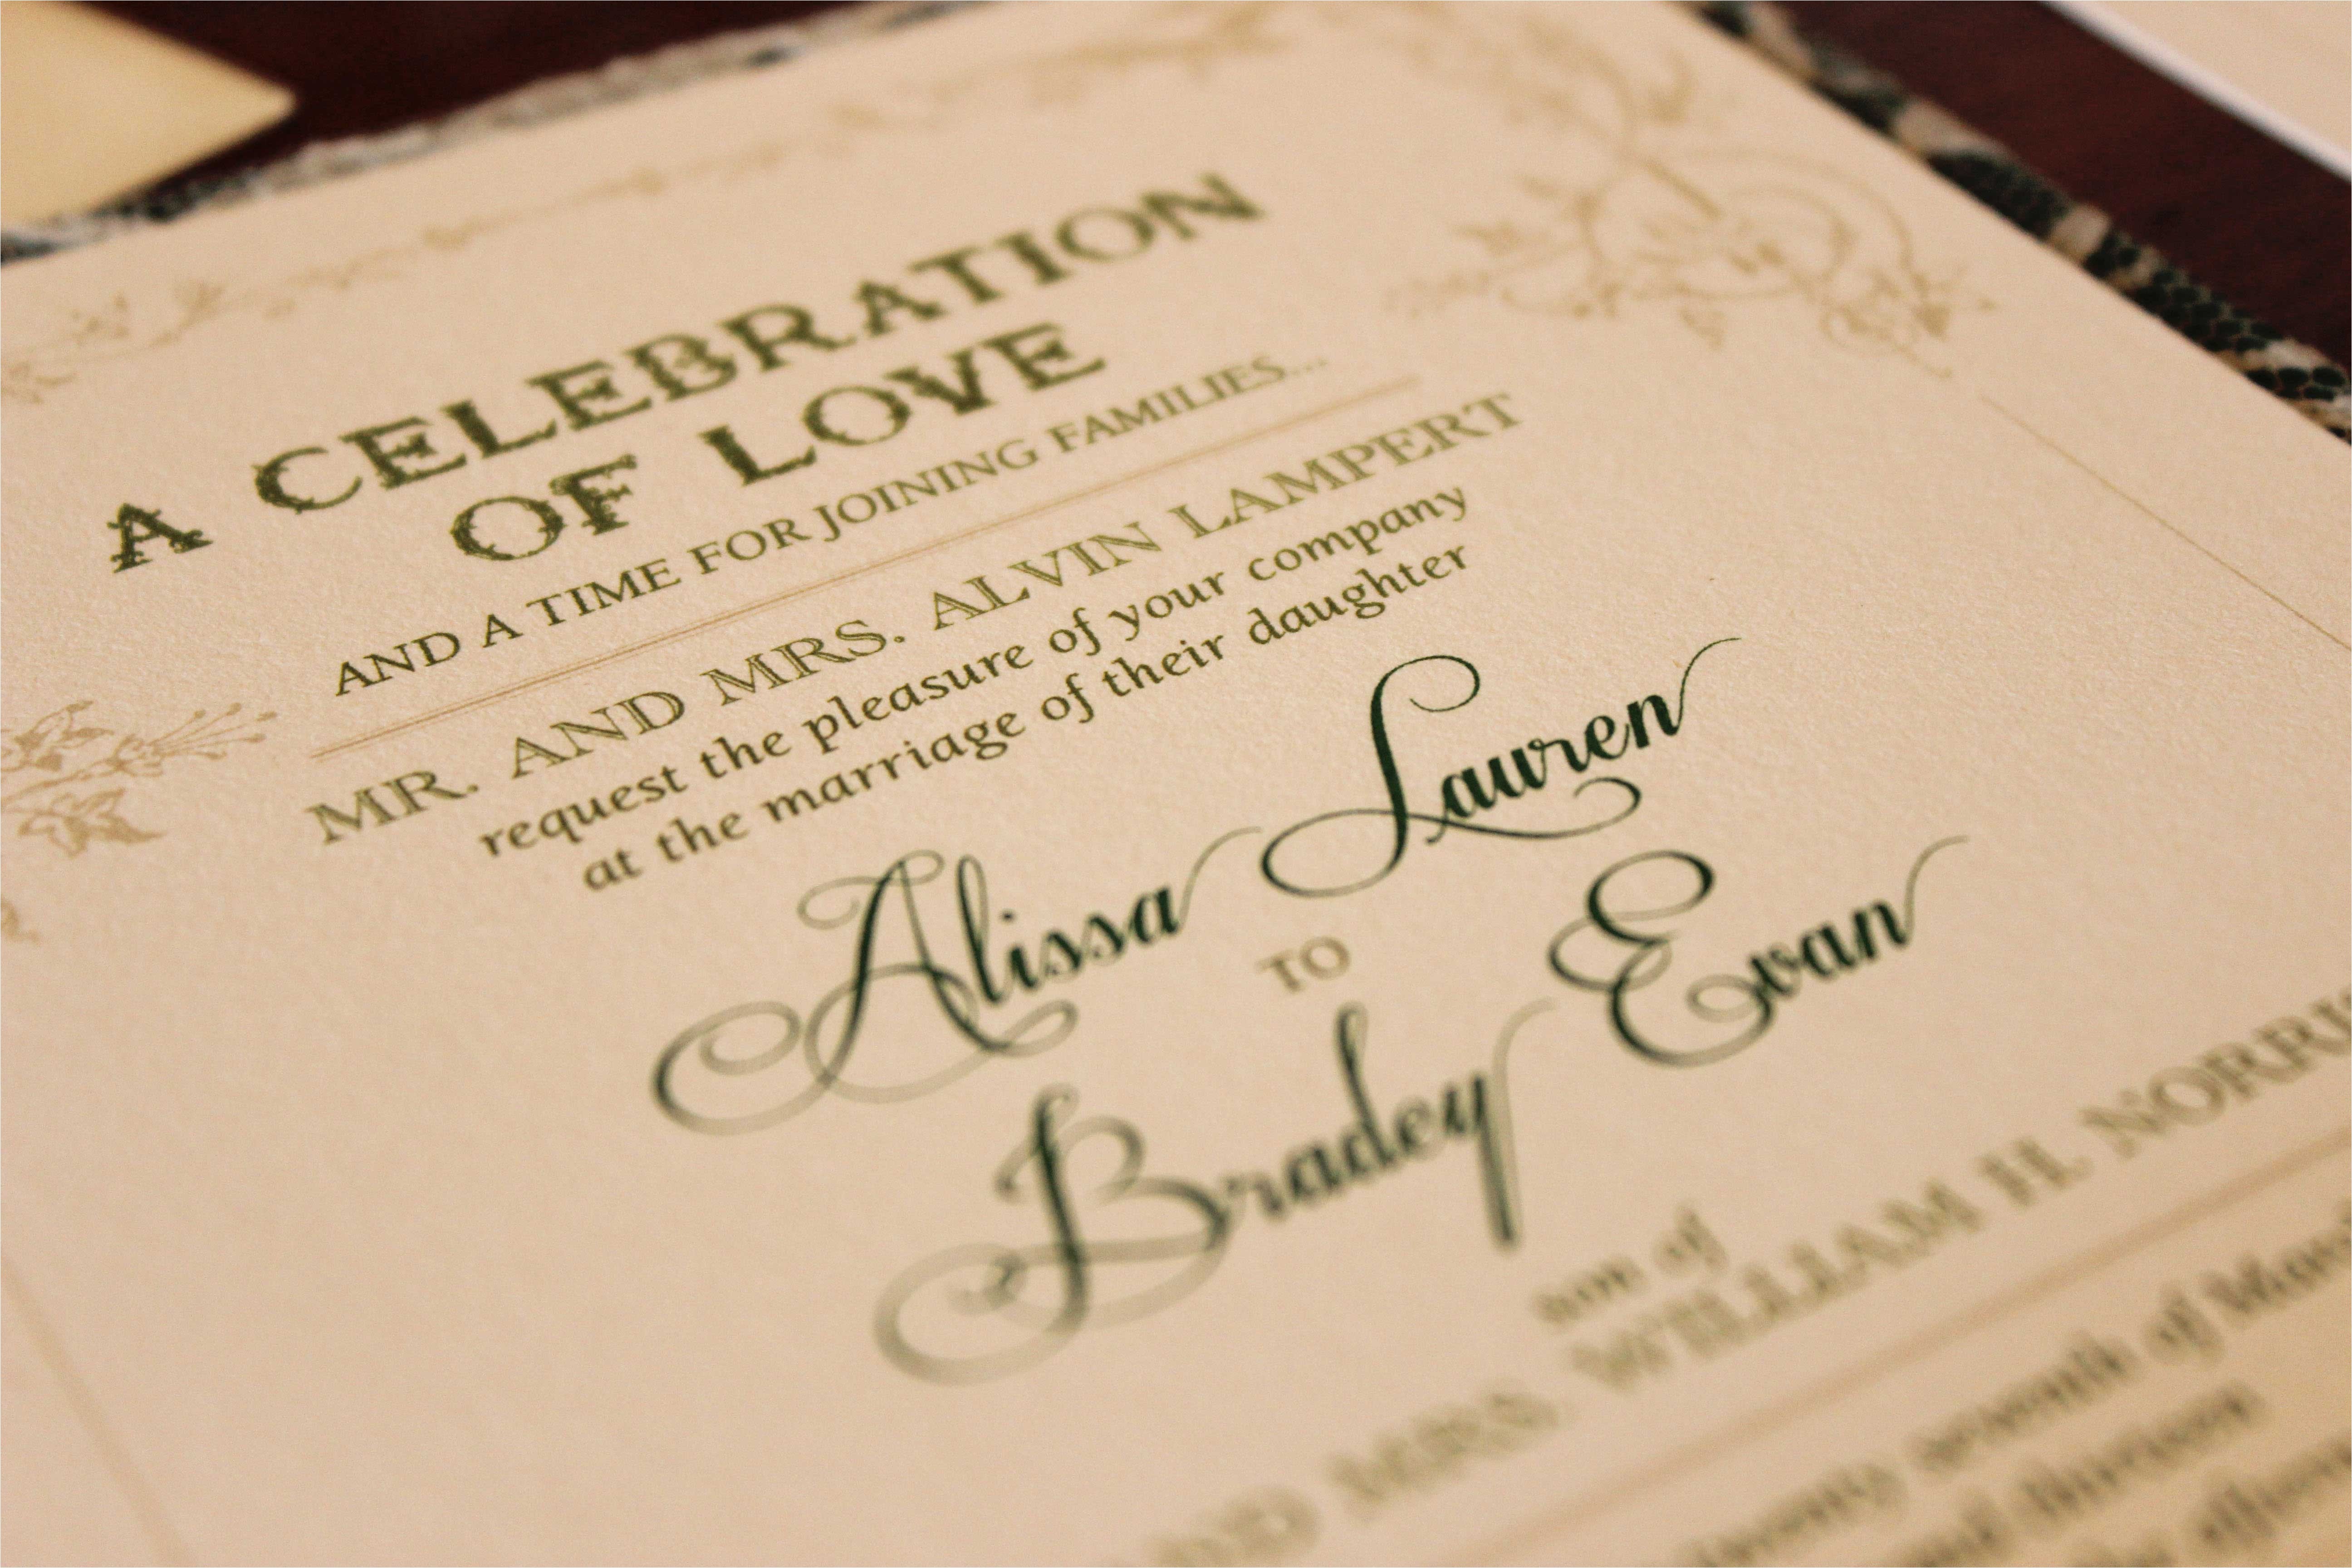 A CELEBRATION
OF LOVE
AND A TIME FOR JOINING FAMILIES...
MR. AND MRS. ALVIN LAMPERT
request the pleasure of your company
at the marriage of their daughter
Alissa Lauren
TO
Bradey Evan
son of
MRS. WILLIAM H.
seventh of
and thirteen